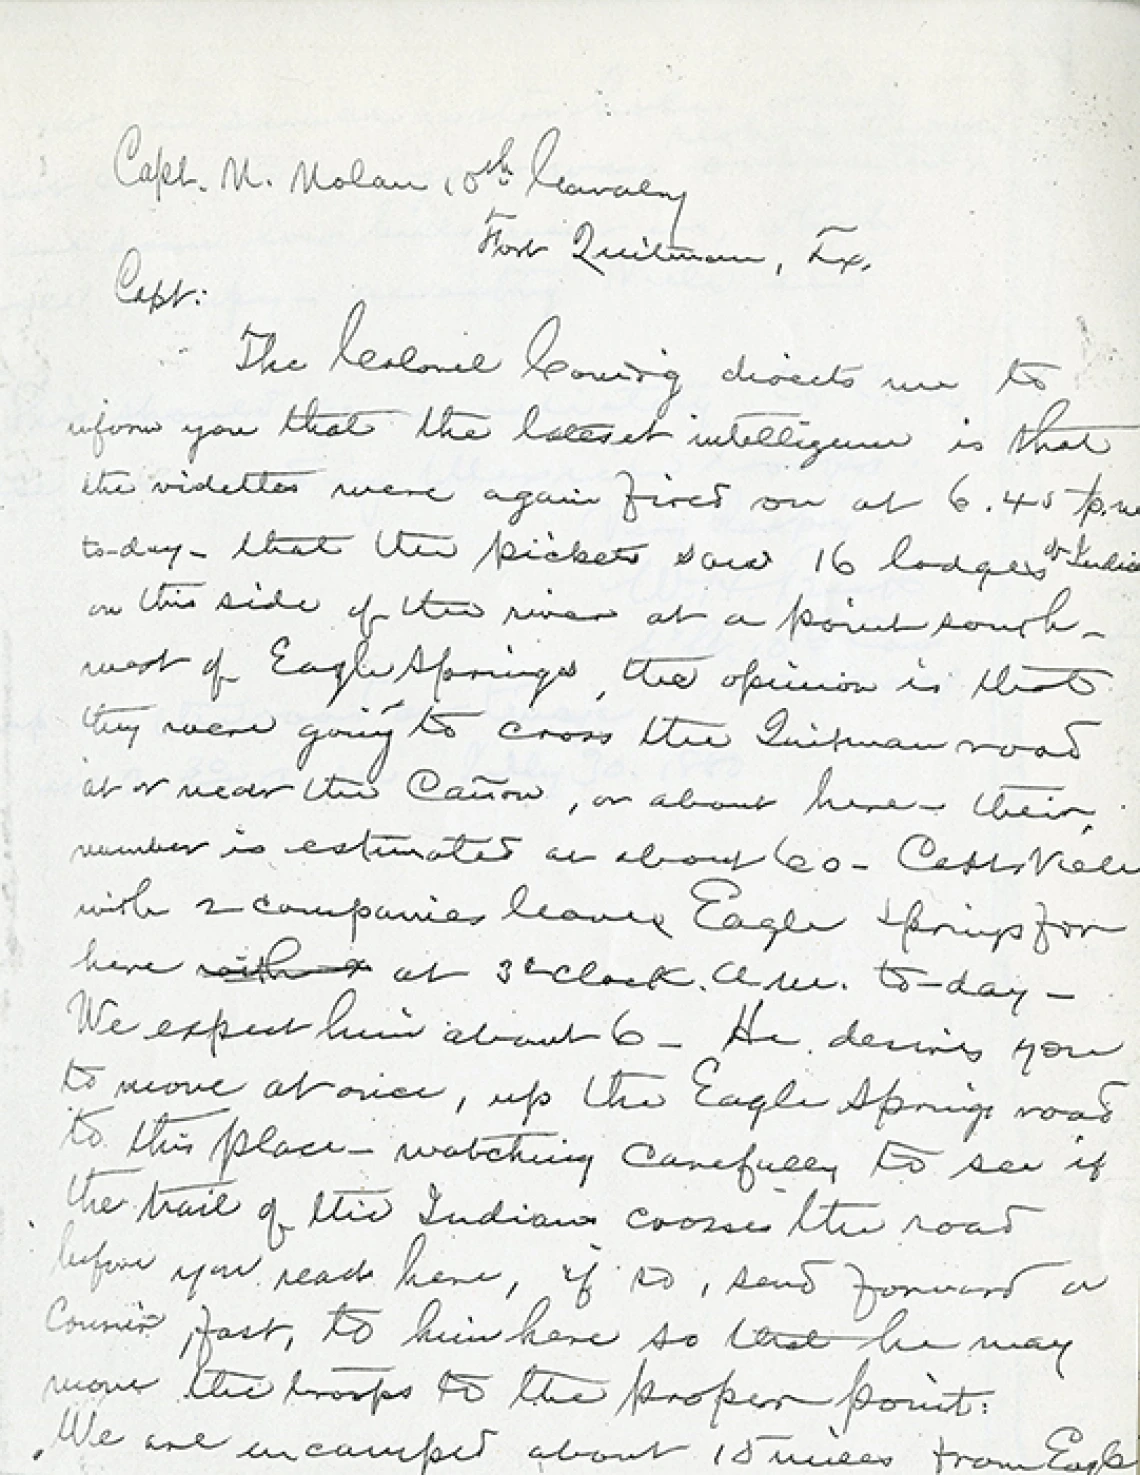 Capt. N. Nolan 10th Cavalry
Fort Quitman, Tx.
Capt:
The Colonel Com'd'g directs me to
inform you that the latest intelligence is that
the videttes were again fired on at 6.45 p.m
to-day - that the pickets saw 16 lodges of India
on this side of the river at a point south-
west of Eagle Springs, the opinion is that
they were going to cross the Quitman road
at or near the Cañon, or about here - their
number is estimated at about 60 - Capt. Viele
with 2 companies leaves Eagle Springs for
here with 2 at 3 o'clock. a.m. to-day -
We expect him about 6 - He desires you
to move at once, up the Eagle Springs road
to this place - watching carefully to see if
the trail of the Indians crosses the road
before you reach here, if so, send forward a
Courier, fast, to him here so that he may
move the troops to the proper point:
We are encamped about 15 miles from Eagle